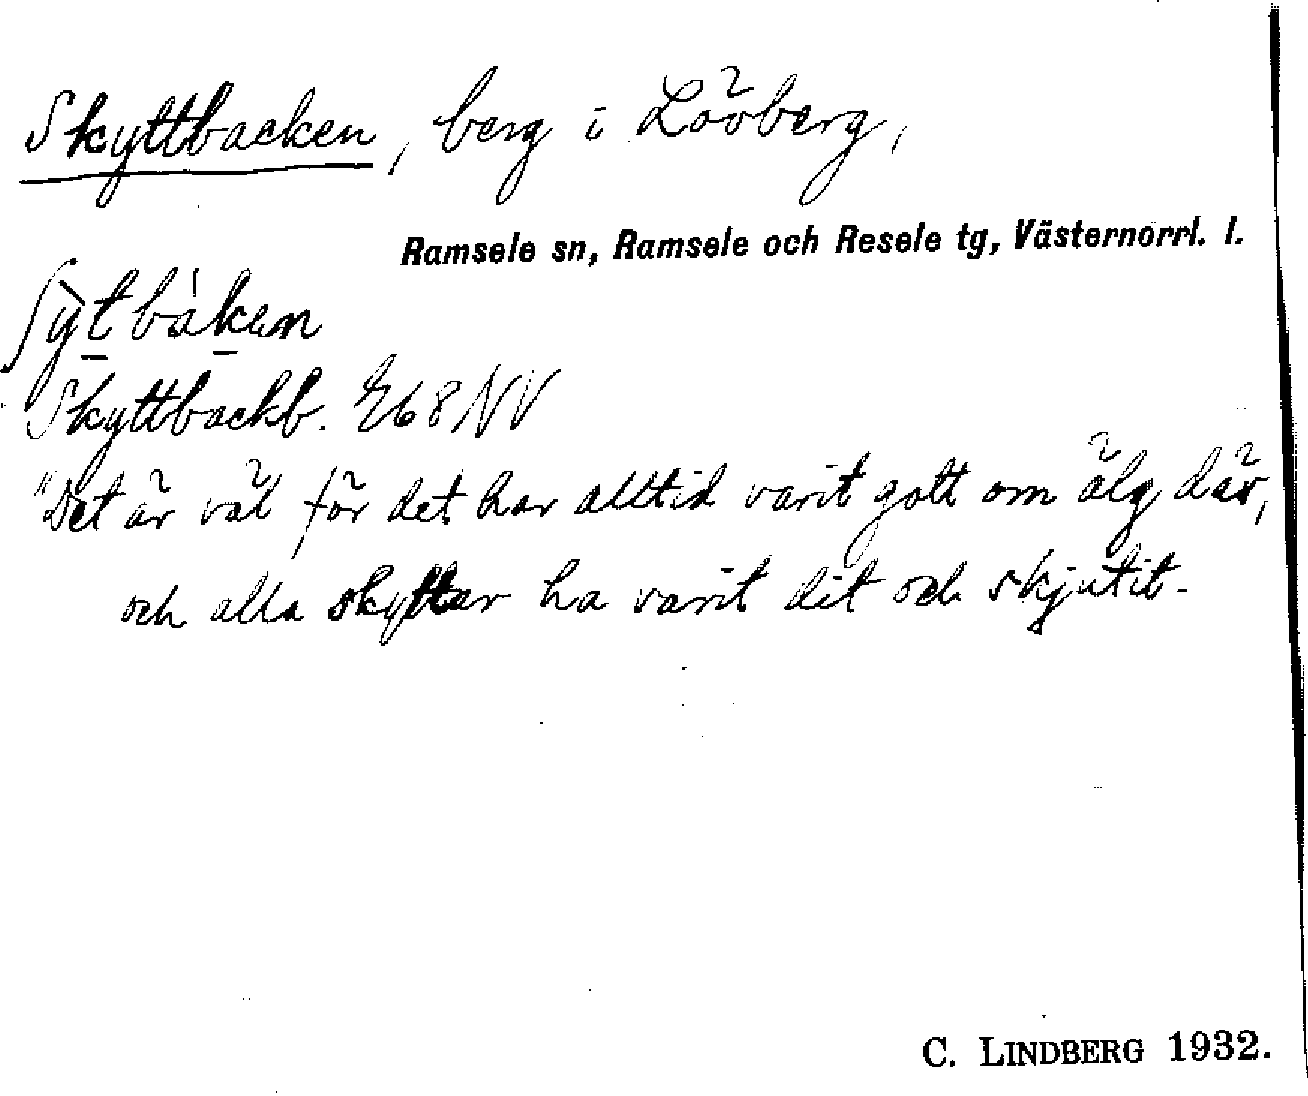 Skyttbacken, berg i Lövberg,
Ramsele sn, Ramsele och Resele tg, Västernorrl. l.
ʃỳt̲bák̲en
Skyttbackb. E68NV
"Det är väl för det har alltid varit gott om älg där,
och alla skyttar ha varit dit och skjutit-
C. LINDBERG 1932.